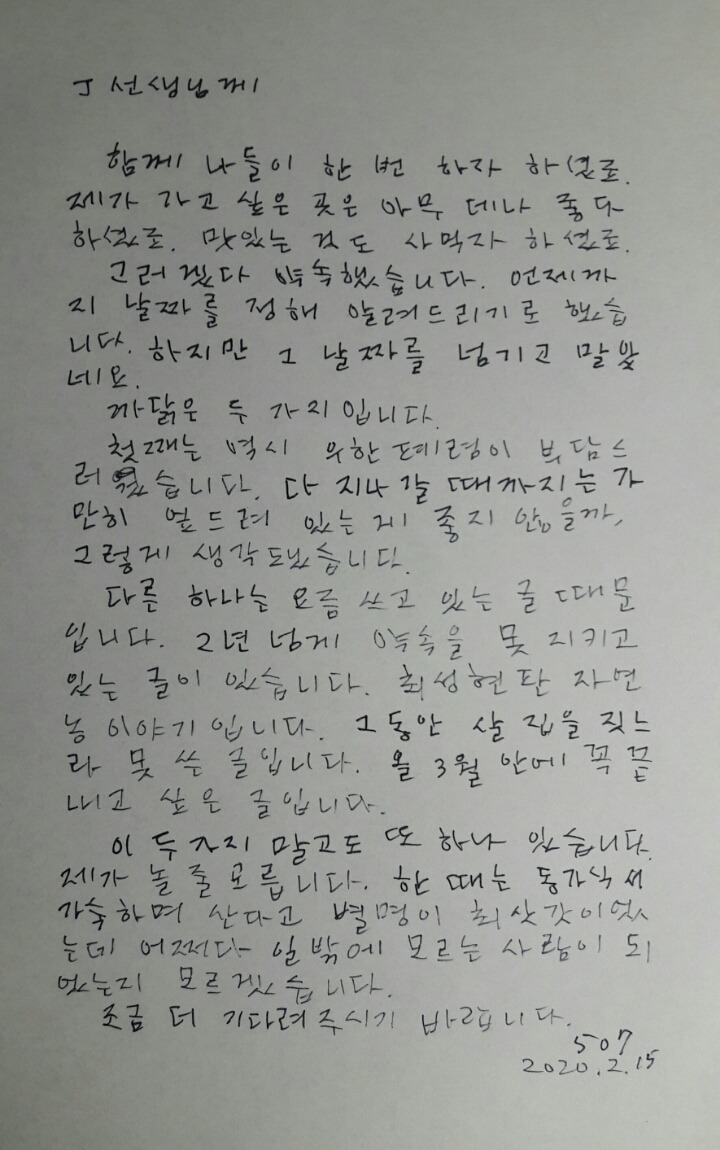 J 선생님께
함께 나들이 한 번 하자 하셨죠.
제가 가고 싶은 곳은 아무 데나 좋다
하셨죠. 맛있는 것도 사먹자 하셨죠.
그러겠다 약속했습니다. 언제까
지 날짜를 정해 알려드리기로 했습
니다. 하지만 그 날짜를 넘기고 말았
네요.
까닭은 두 가지입니다.
첫째는 역시 우한폐렴이 부담스
러웠습니다. 다 지나갈 때까지는 가
만히 엎드려 있는 게 좋지 않을까,
그렇게 생각됐습니다.
다른 하나는 요즘 쓰고 있는 글 때문
입니다. 2년 넘게 약속을 못 지키고
있는 글이 있습니다. 최성현판 자연
농 이야기입니다. 그동안 살 집을 짓느
라 못 쓴 글입니다. 올 3월 안에 꼭 끝
내고 싶은 글입니다.
이 두 가지 말고도 또 하나 있습니다.
제가 놀 줄 모릅니다. 한 때는 동가식서
가숙하며 산다고 별명이 최삿갓이었
는데 어쩌다 일밖에 모르는 사람이 되
었는지 모르겠습니다.
조금 더 기다려주시기 바랍니다.
507
2020.2.15